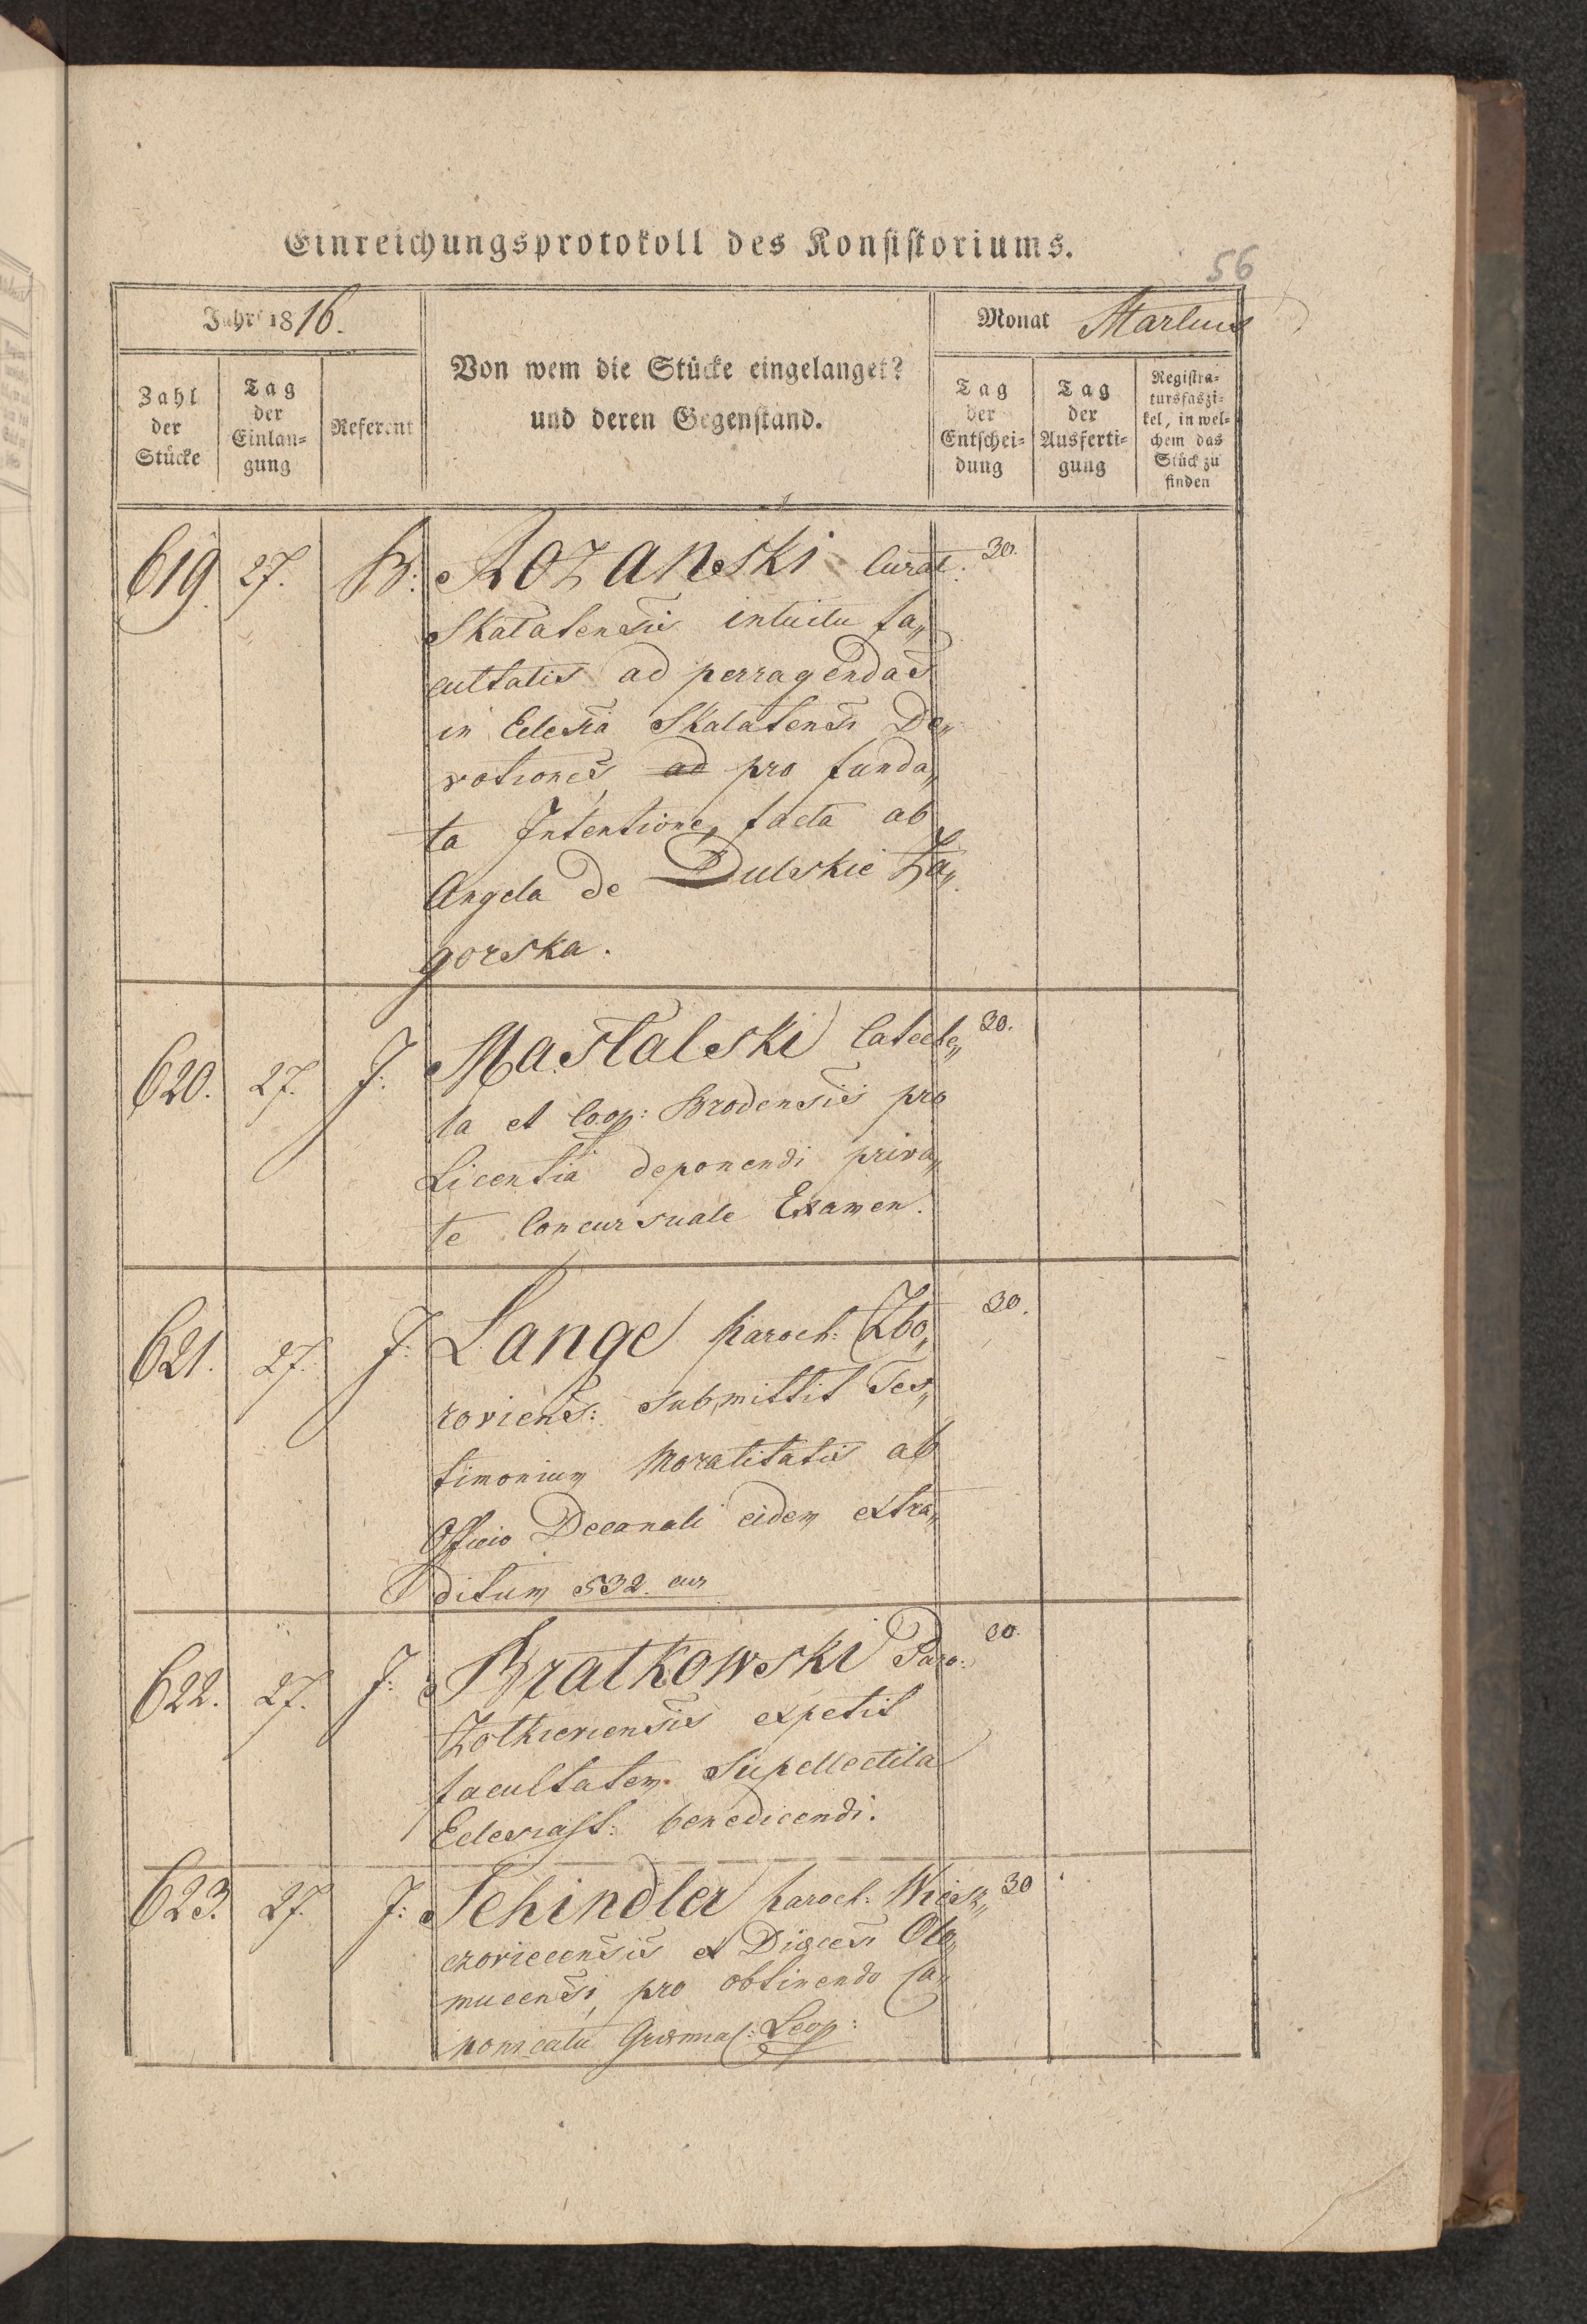 Einreichungsprotokoll des Konsistoriums.
56
Jahr 1816.
Monat Martius
Zahl der Stücke
Tag der Einlangung
Referent
Von wem die Stücke eingelanget?
und deren Gegenstand.
Tag der Entscheidung
Tag der Ausfertigung
Registratursfaszikel, in welchem das Stück zu finden
619. 27. B: Rozanski Curat: 30.
Skalatensis intuitu fa„
cultatis ad perragendas
in Eclesia Skalatensi De„
votiones, ad pro funda„
ta Intentione, facta ab
Angela de Dulskie Za„
gorska.
620. 27. J: Mastalski Cateche„ 30.
ta et Coop: Brodensis pro
Licentia deponendi priva„
te Concursuale Examen.
621. 27. J: Lange Paroch: Zbo„ 30.
roviens: submittit Tes„
timonium Moralitatis ab
Officio Decanali eidem extra„
ditum 532. cur
622. 27. J: Bratkowski Paro: 30.
Zolkieviensis expetit
facultatem Supellectila
Eclesiast: benedicendi.
623. 27. J: Schindler Paroch: Wisk„ 30
et Diœcesi Olo„
mucensi, pro obtinendo Ca„
nonicatu Gremial: Leop: